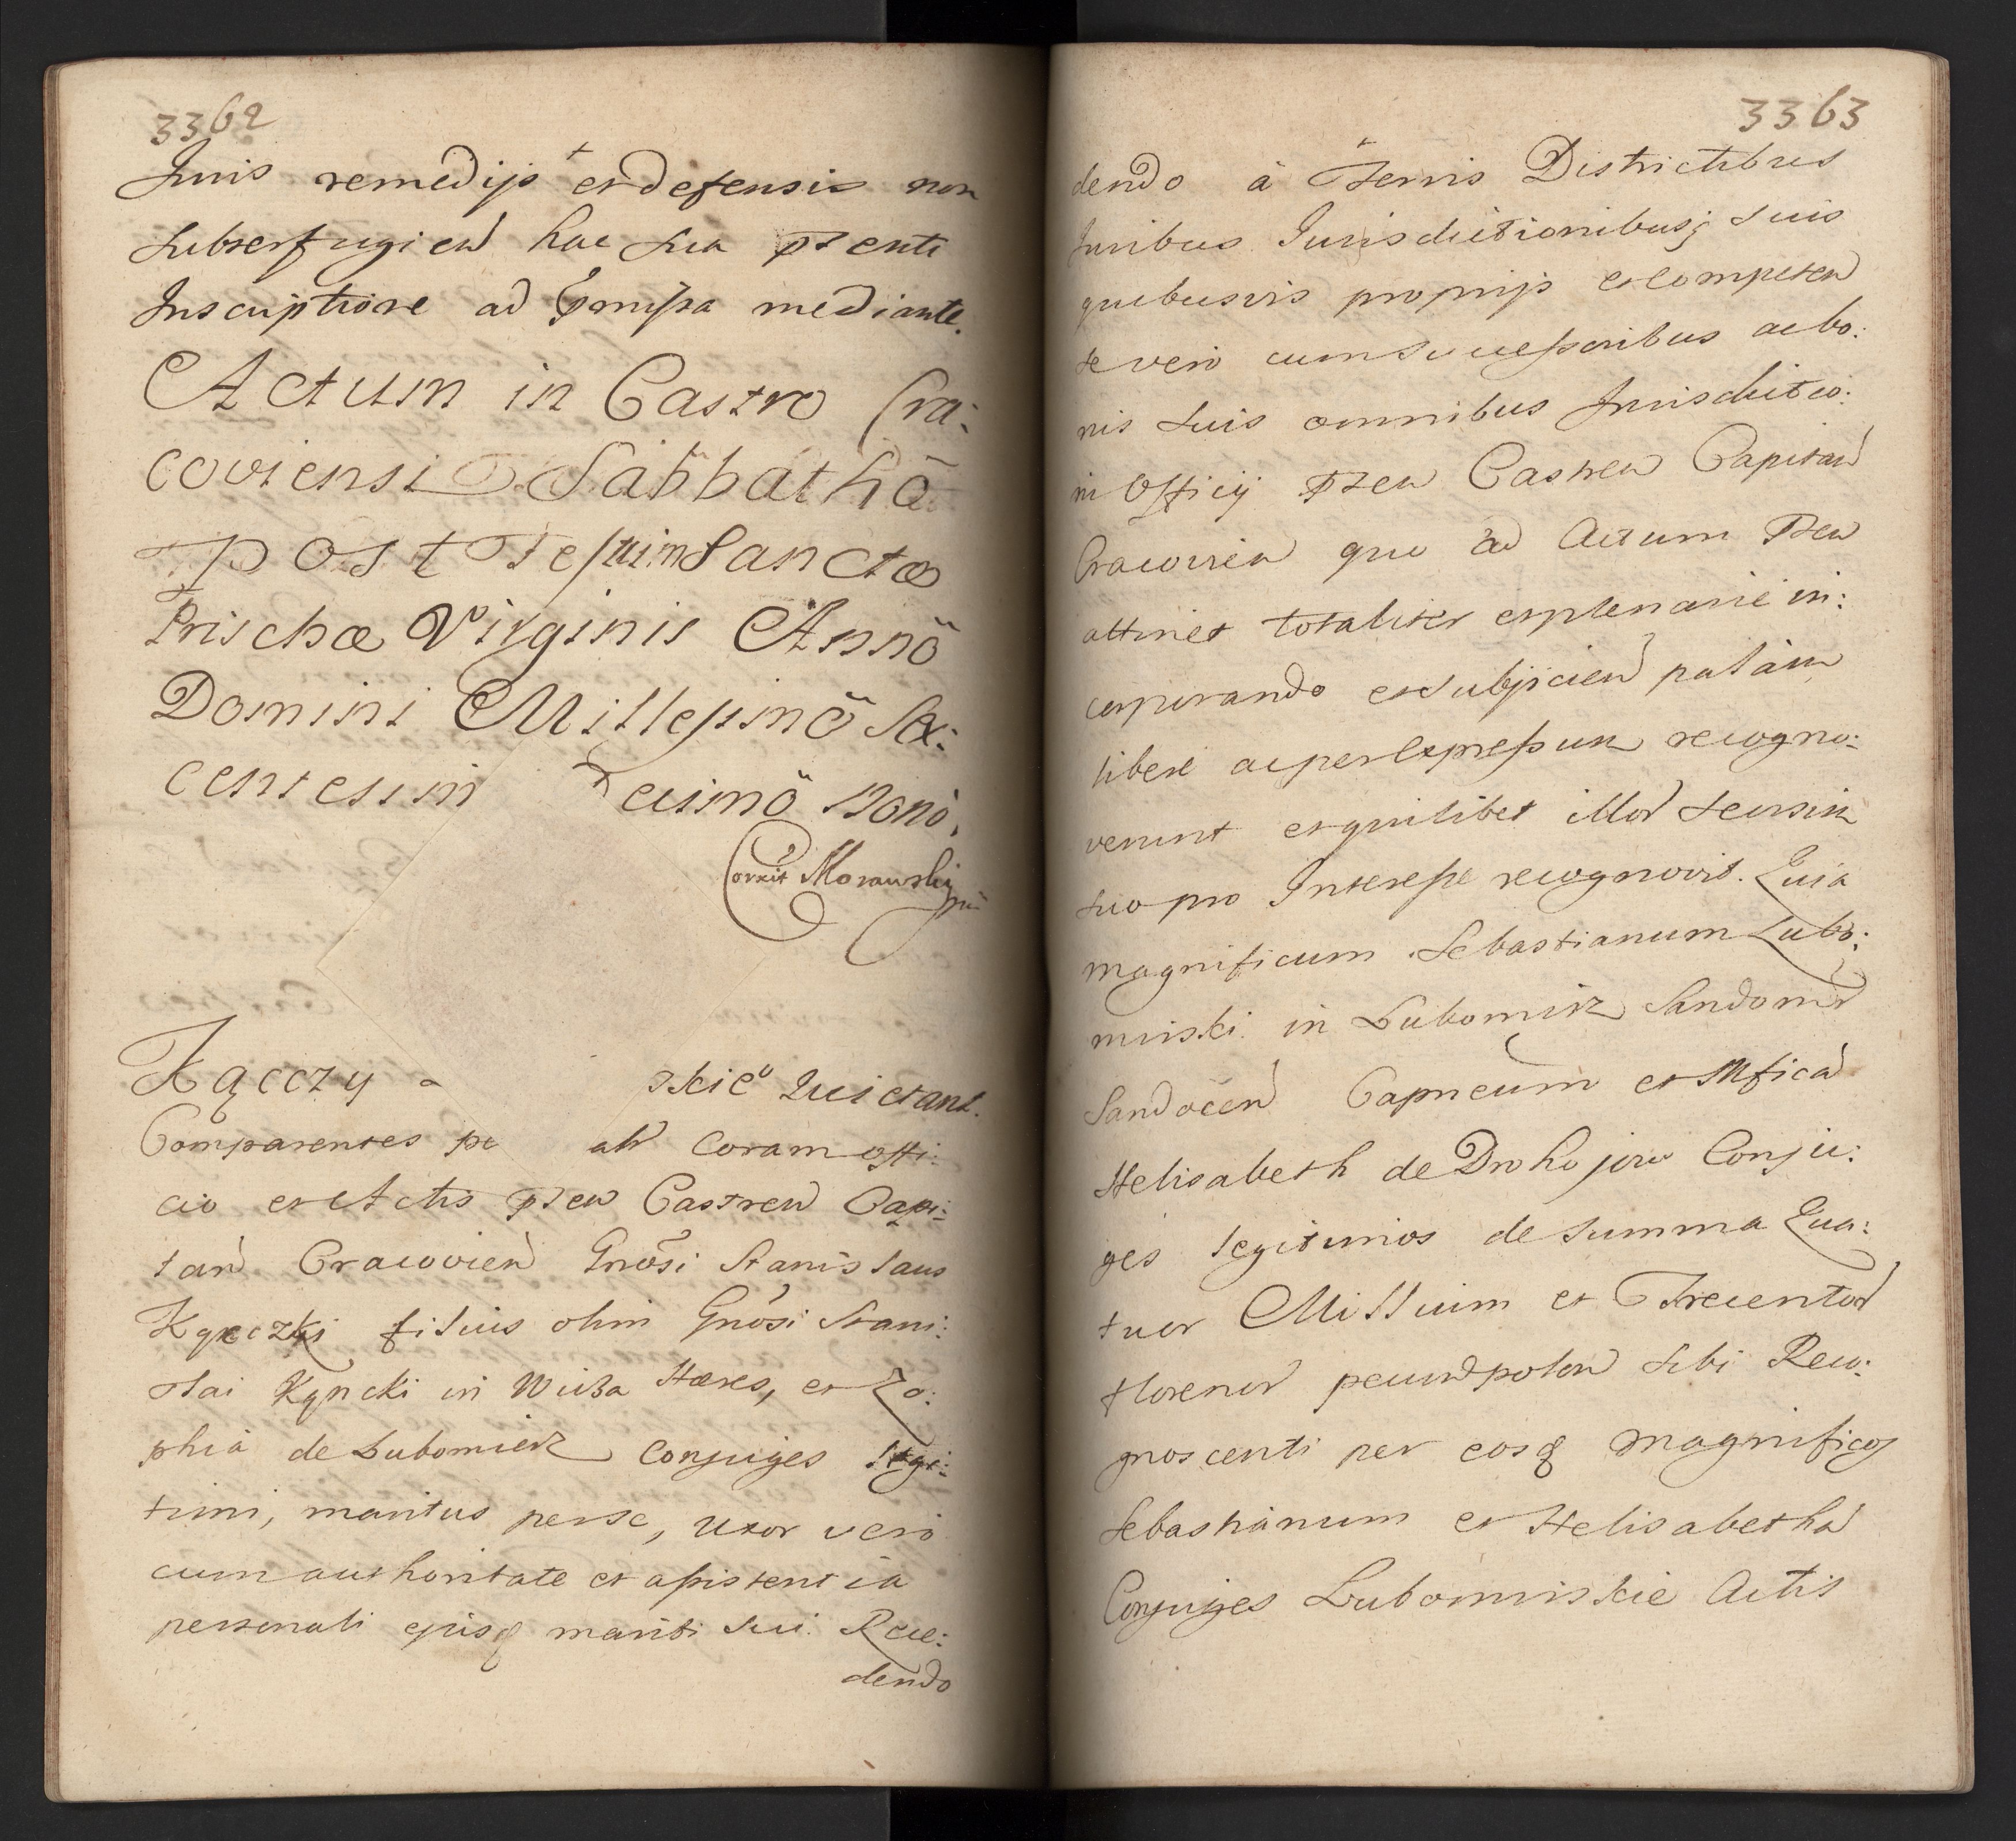 3362
Juris remedijs et defensis non
subterfugien hac sua pſenti
Inscriptione ad pmissa mediante.
Actum in Castro Cra:
coviensi Sabbathō
post Festum Sanctæ
Prischæ Virginis Annō
Domini Millesimō Sex:
centesim Decimō nonō.
Correxit Morawski mp
Kącczy skie Quietant.
Comparentes pe alr coram offi:
cio et Actis pſen Castren Capi:
tan Cracovien Gnōsi Stanislaus
Kąpczki filius olim Gnōsi Stani:
slai Kąpcki in Wissa Hæres, et Zo:
phia de Lubomierz Conjuges legi:
timi, maritus per se, uxor vero
cum authoritate et assistentia
personali ejusq mariti sui. Rece:
dendo
3363
dendo à Terris Districtibus
Juribus Jurisdictionibusq suis
quibusvis proprijs et competen
se vero cum successoribus ac bo:
nis suis omnibus Jurisdictio:
ni Officij pſen Castren Capitan
Cracovien quo ad Actum pſen
attinet totaliter et plenarie in:
corporando et subijcien palàm
libere ac per expressum recogno:
verunt et quilibet illor seorsim
suo pro Interesse recognovit. Quia
magnificum Sebastianum Lubo:
mirski in Lubomirz Sandomir
Sandecen Capneum et Mficā
Helisabeth de Drohojow Conju:
ges legitimos de summa Qua:
tuor Millium et Trecentor
florenor pecun polon sibi Reco:
gnoscenti per eosq magnificos
Sebastianum et Helisabetha
Conjuges Lubomirskie Actis